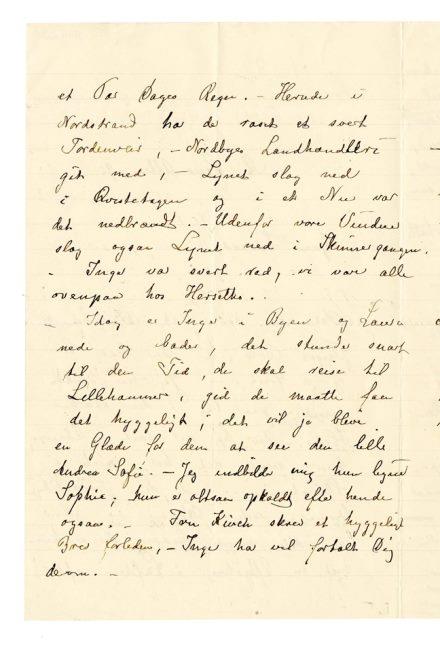 et Par Dages Regn. – Herude i
Nordstrand ha de havt et svert
Tordenveir, – Nordbyes Landhandleri
gik med, – Lynet slog ned
i Kvistetagen og i et Nu var
det nedbrændt. – Udenfor vore Vinduer
slog ogsaa Lynet ned i Skinnegangen.
– Inga var svert ræd, vi vare alle
ovenpaa hos
– Idag er Inga i Byen og Laura
nede og bader, det stunder snart
til den Tid, de skal reise til
Lillehammer, gid de maatte faa
det hyggeligt; det vil jo blive
en Glæde for dem at see den lille
Andrea Sofie. – Jeg indbilder mig hun ligner
Sophie; hun er altsaa opkaldt efter hende
ogsaa. – skrev et hyggeligt
Brev forleden, – Inga ha vel fortalt Dig
derom. –